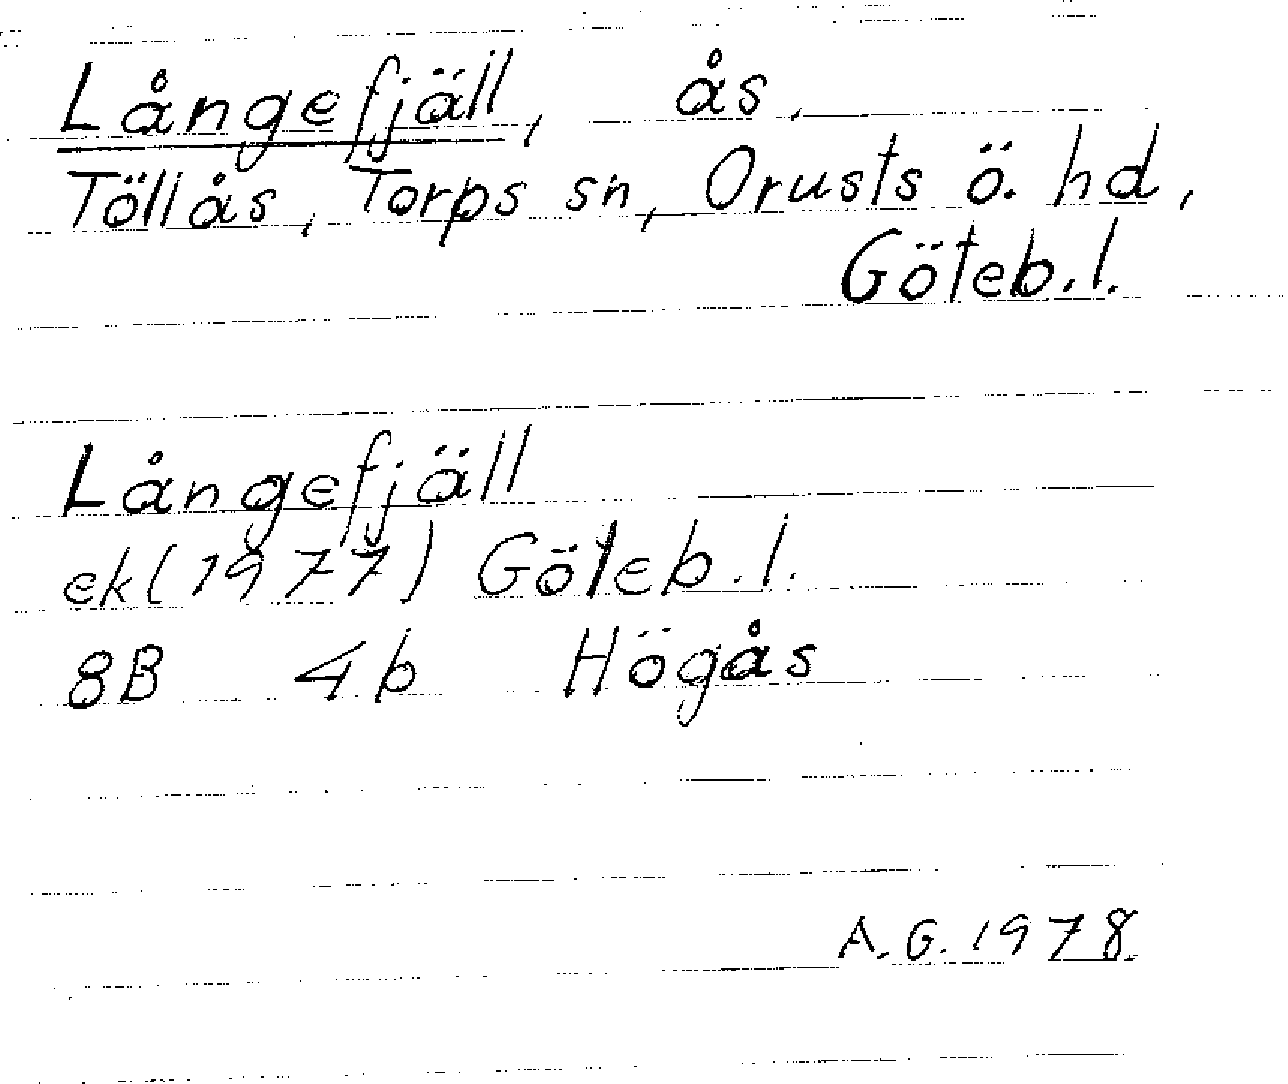 Långefjäll, ås,
Töllås, Torps sn, Orusts ö. hd,
Göteb.l.
Långefjäll
ek(1977) Göteb.l.
8B 4b Högås
A.G. 1978